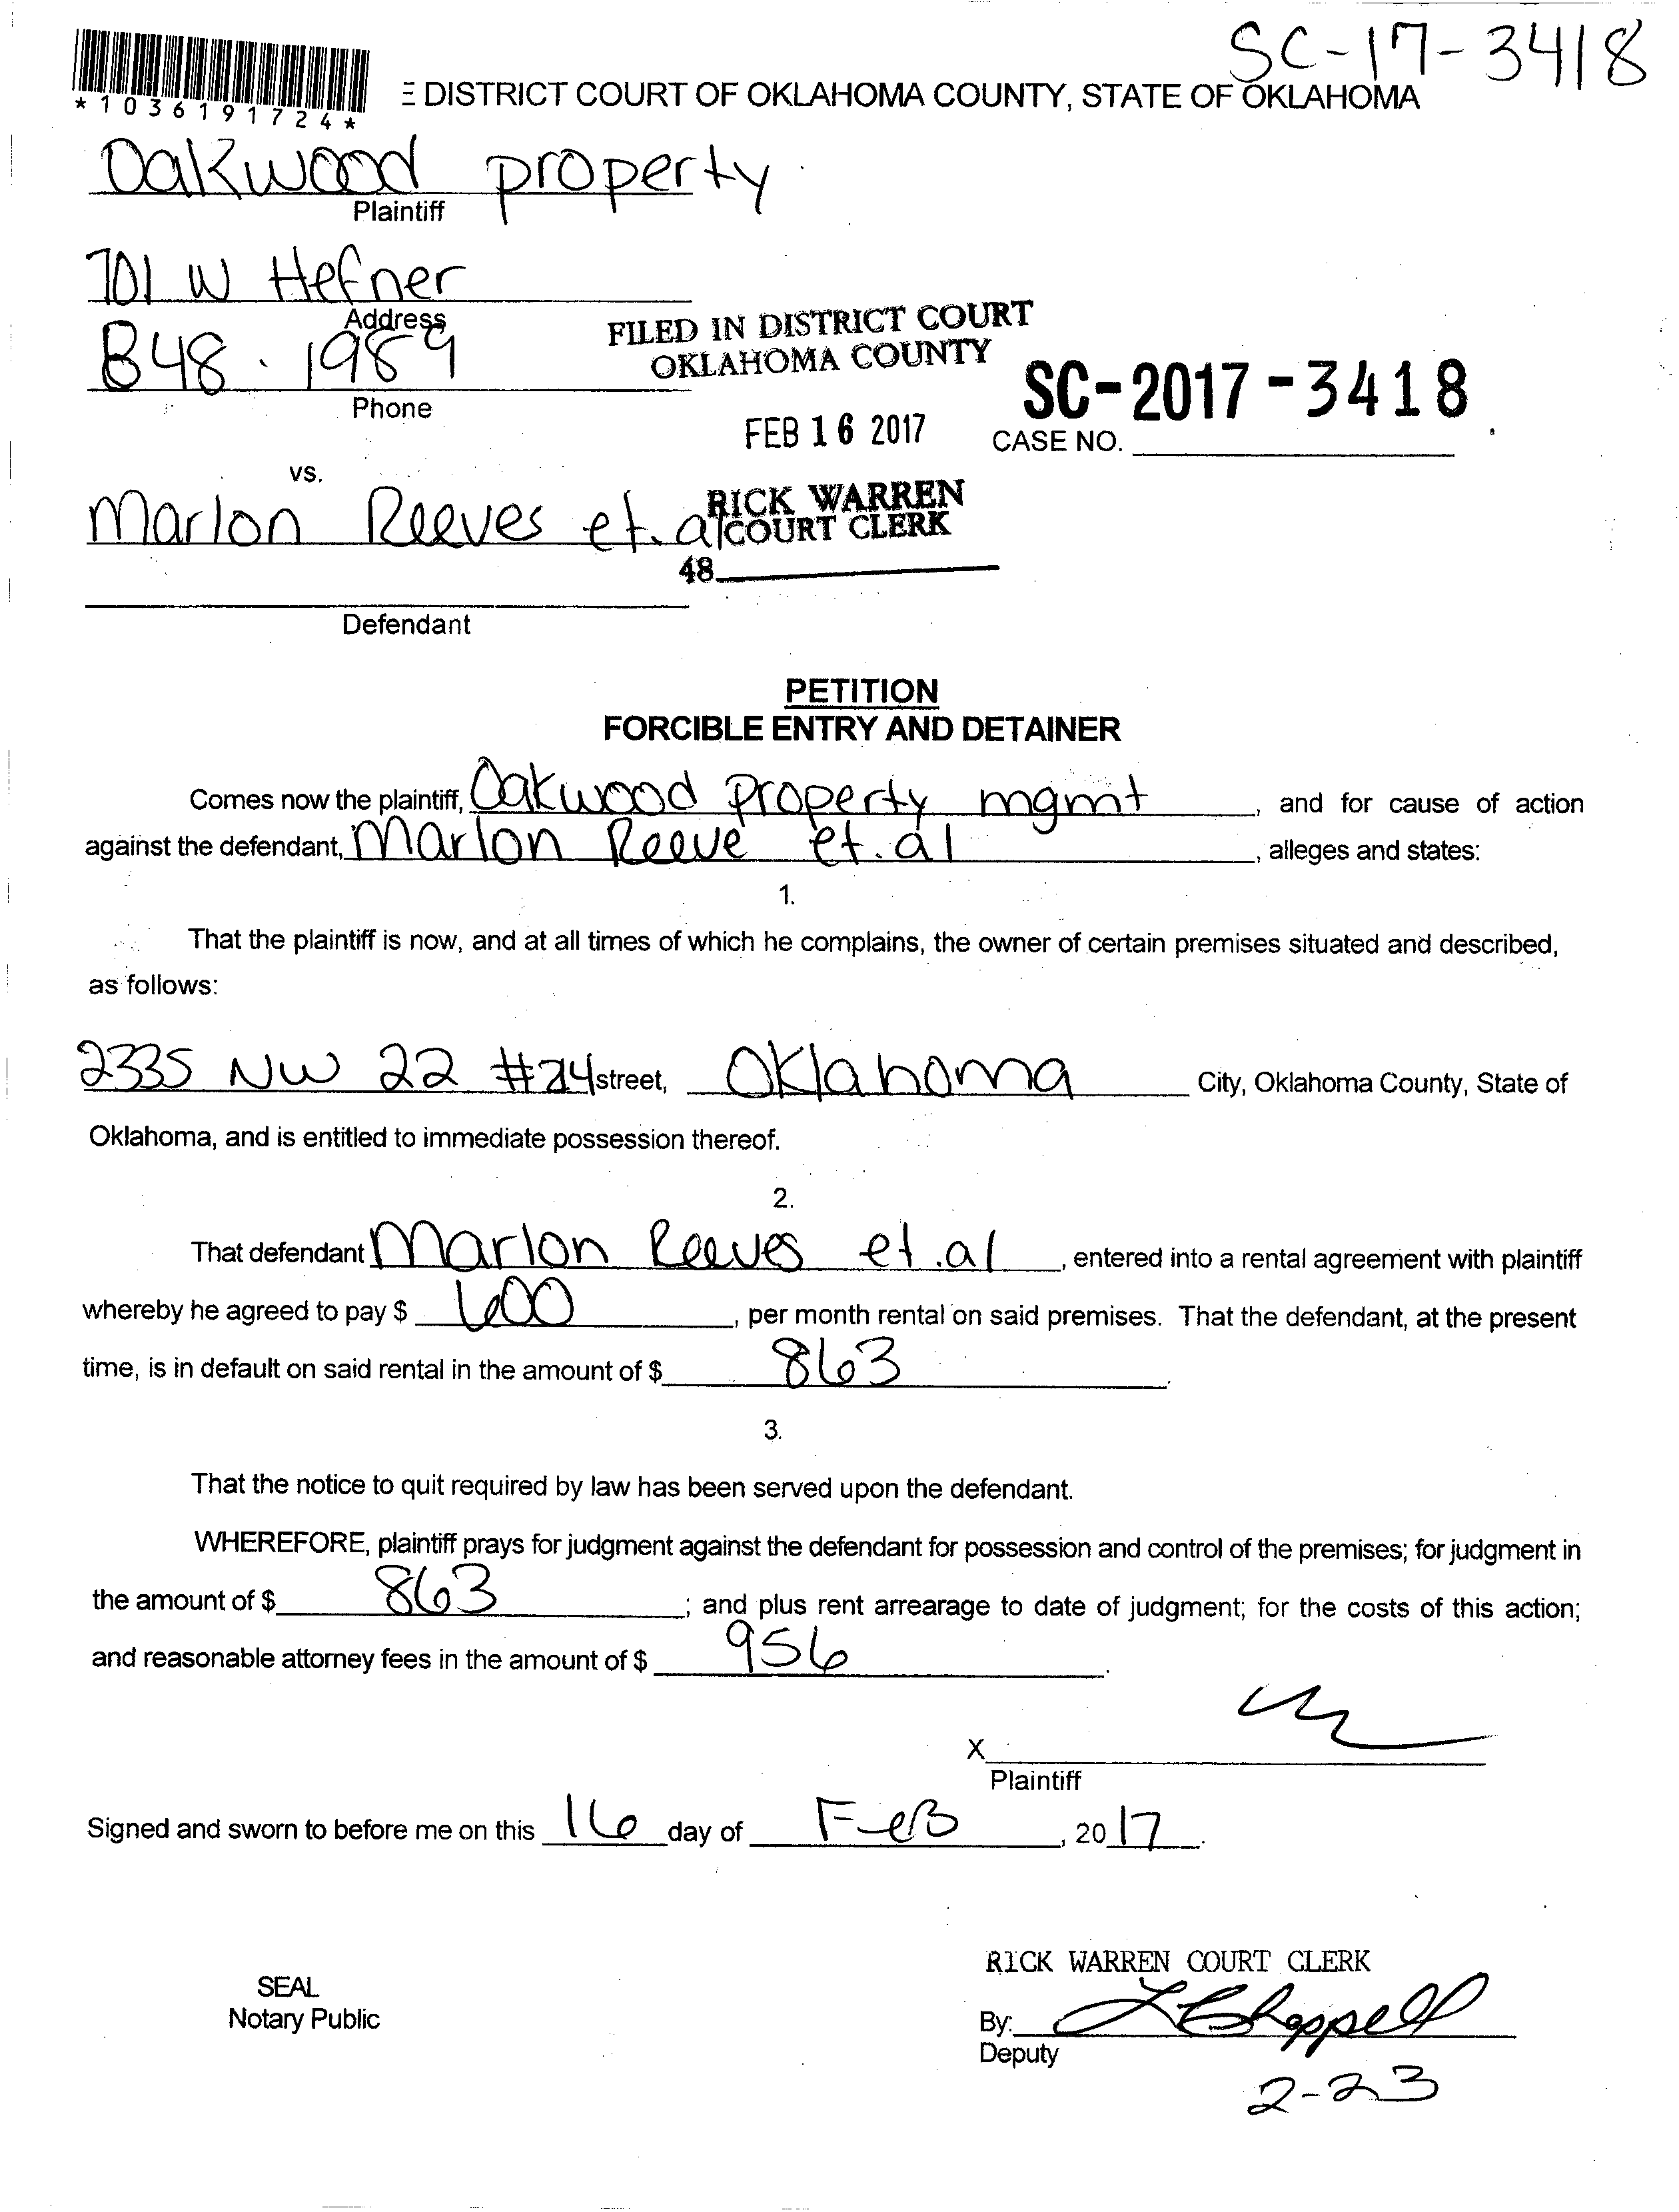 SC-17-3418
*1036191724*
E DISTRICT COURT OF OKLAHOMA COUNTY, STATE OF OKLAHOMA
Oakwood property
Plaintiff
701 W Hefner
Address
848.1989
Phone
FILED IN DISTRICT COURT
OKLAHOMA COUNTY
FEB 16 2017
SC-2017-3418
CASE NO.
vs.
Marlon Reeves et. al
RICK WARREN
COURT CLERK
48
Defendant
PETITION
FORCIBLE ENTRY AND DETAINER
Comes now the plaintiff, Oakwood property mgmt, and for cause of action
against the defendant, Marlon Reeve et. al, alleges and states:
1.
That the plaintiff is now, and at all times of which he complains, the owner of certain premises situated and described,
as follows:
2335 NW 22 #24 street, Oklahoma City, Oklahoma County, State of
Oklahoma, and is entitled to immediate possession thereof.
2.
That defendant Marlon Reeves et.al, entered into a rental agreement with plaintiff
whereby he agreed to pay $ 600, per month rental on said premises. That the defendant, at the present
time, is in default on said rental in the amount of $ 863.
3.
That the notice to quit required by law has been served upon the defendant.
WHEREFORE, plaintiff prays for judgment against the defendant for possession and control of the premises; for judgment in
the amount of $ 863; and plus rent arrearage to date of judgment; for the costs of this action;
and reasonable attorney fees in the amount of $ 956.
X
Plaintiff
Signed and sworn to before me on this 16 day of FeB, 2017.
RICK WARREN COURT CLERK
SEAL
Notary Public
By: L Chappell
Deputy
2-23